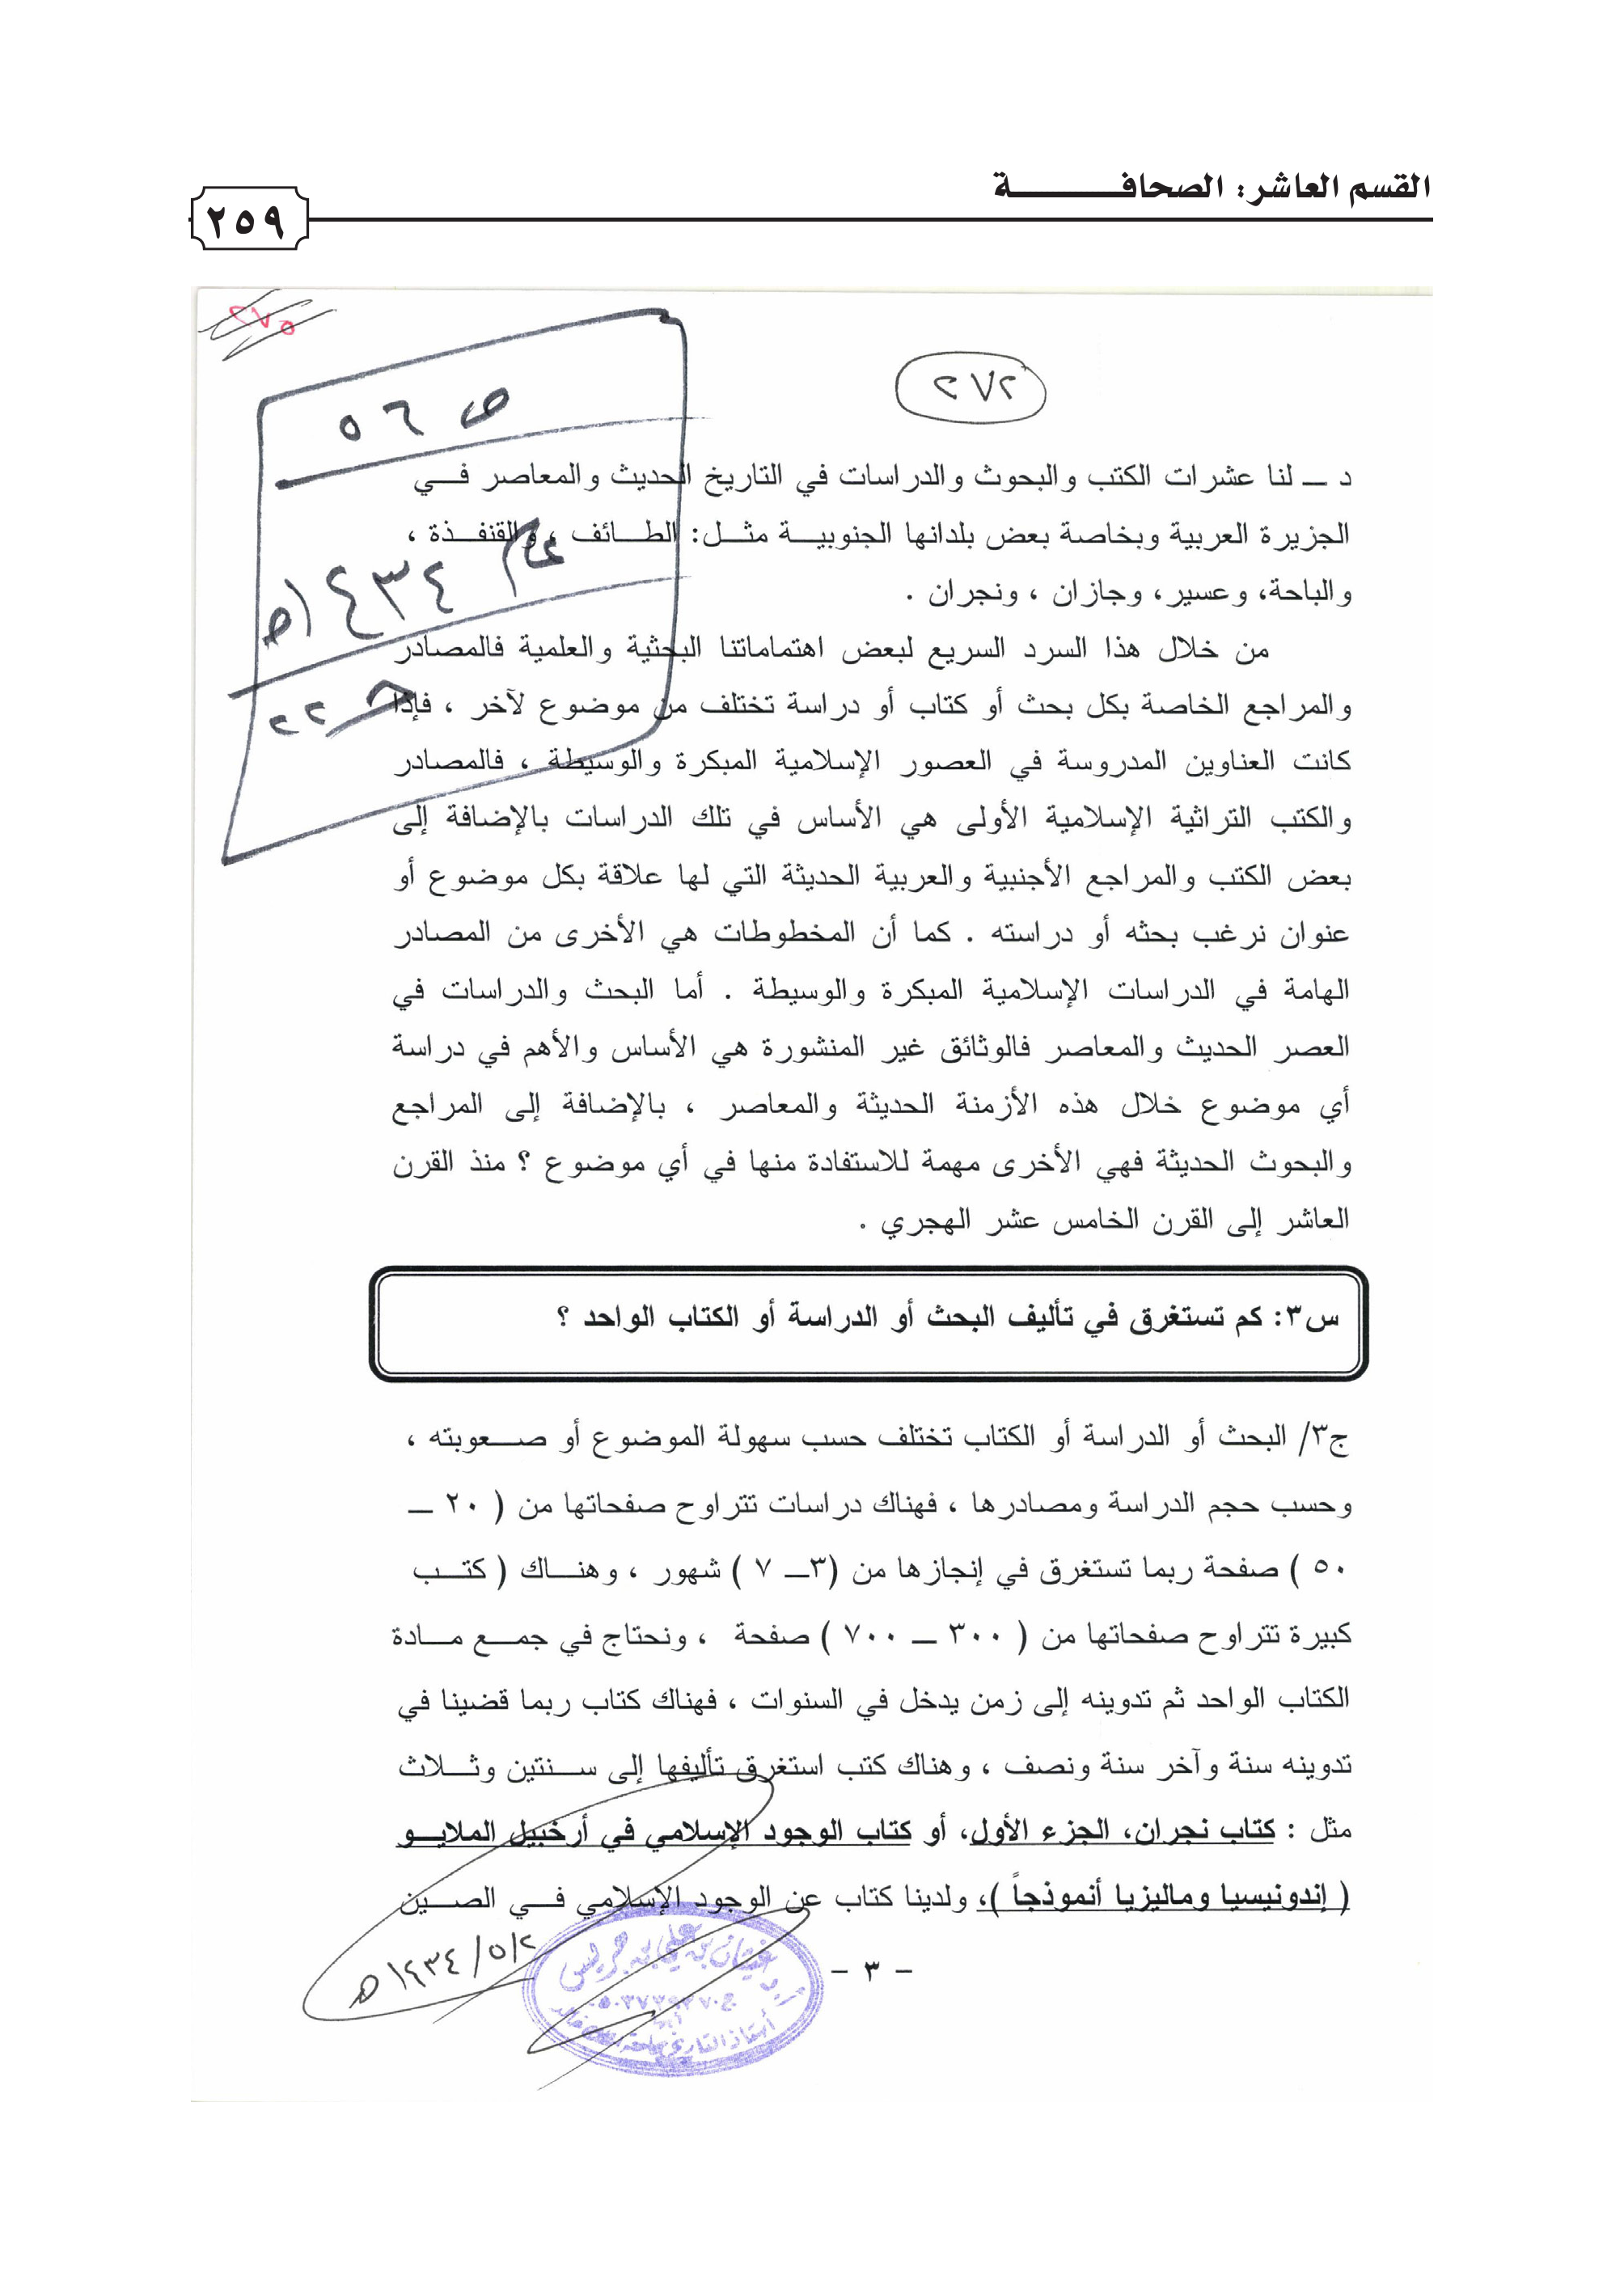 القسم العاشر: الصحافـــــــــــة
٢٥٩
٢٧٥
٢٧٢
ص ٥٦
عام ١٤٣٤هـ
حـ ٢٢
د ـــ لنا عشرات الكتب والبحوث والدراسات في التاريخ الحديث والمعاصر فـــي
الجزيرة العربية وبخاصة بعض بلدانها الجنوبيـــة مثـــل: الطـــائف ، والقنفـــذة ،
والباحة، وعسير، وجازان ، ونجران .
من خلال هذا السرد السريع لبعض اهتماماتنا البحثية والعلمية فالمصادر
والمراجع الخاصة بكل بحث أو كتاب أو دراسة تختلف من موضوع لآخر ، فإذا
كانت العناوين المدروسة في العصور الإسلامية المبكرة والوسيطة ، فالمصادر
والكتب التراثية الإسلامية الأولى هي الأساس في تلك الدراسات بالإضافة إلى
بعض الكتب والمراجع الأجنبية والعربية الحديثة التي لها علاقة بكل موضوع أو
عنوان نرغب بحثه أو دراسته . كما أن المخطوطات هي الأخرى من المصادر
الهامة في الدراسات الإسلامية المبكرة والوسيطة . أما البحث والدراسات في
العصر الحديث والمعاصر فالوثائق غير المنشورة هي الأساس والأهم في دراسة
أي موضوع خلال هذه الأزمنة الحديثة والمعاصر ، بالإضافة إلى المراجع
والبحوث الحديثة فهي الأخرى مهمة للاستفادة منها في أي موضوع ؟ منذ القرن
العاشر إلى القرن الخامس عشر الهجري .
س٣: كم تستغرق في تأليف البحث أو الدراسة أو الكتاب الواحد ؟
ج٣/ البحث أو الدراسة أو الكتاب تختلف حسب سهولة الموضوع أو صـــعوبته ،
وحسب حجم الدراسة ومصادرها ، فهناك دراسات تتراوح صفحاتها من ( ٢٠ ـــ
٥٠ ) صفحة ربما تستغرق في إنجازها من (٣ـــ ٧ ) شهور ، وهنـــاك ( كتـــب
كبيرة تتراوح صفحاتها من ( ٣٠٠ ـــ ٧٠٠ ) صفحة ، ونحتاج في جمـــع مـــادة
الكتاب الواحد ثم تدوينه إلى زمن يدخل في السنوات ، فهناك كتاب ربما قضينا في
تدوينه سنة وآخر سنة ونصف ، وهناك كتب استغرق تأليفها إلى ســـنتين وثـــلاث
مثل : كتاب نجران، الجزء الأول، أو كتاب الوجود الإسلامي في أرخبيل الملايـــو
( إندونيسيا وماليزيا أنموذجاً )، ولدينا كتاب عن الوجود الإسلامي فـــي الصـــين
١٤٣٤/٥/٢هـ
أ.د غيثان بن علي بن جريس
أستاذ التاريخ
- ٣ -